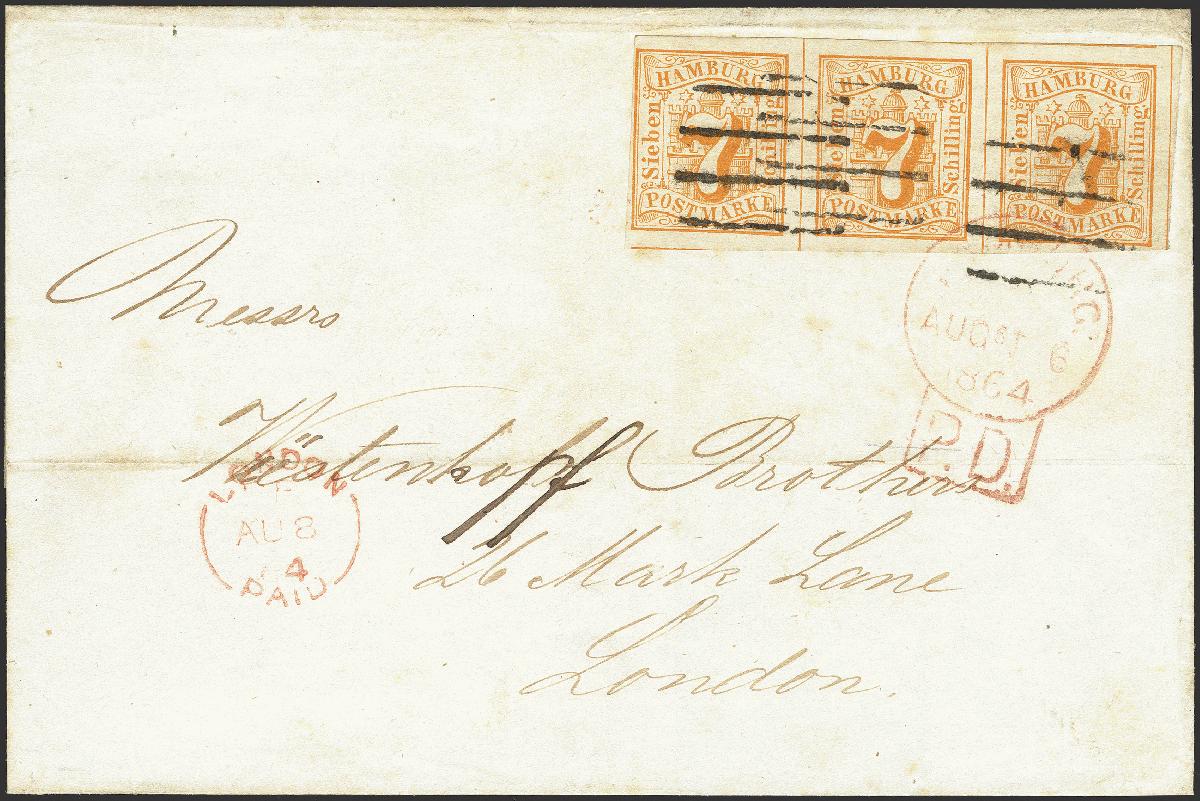 HAMBURG HAMBURG HAMBURG
Sieben 7 Schilling Sieben 7 Schilling Sieben 7 Schilling
POSTMARKE POSTMARKE POSTMARKE
AUGST 6
1864
P.D.
Messrs
Westenhopf Brothers
26 Mark Lane
London.
LONDON
AU 8
4
PAID